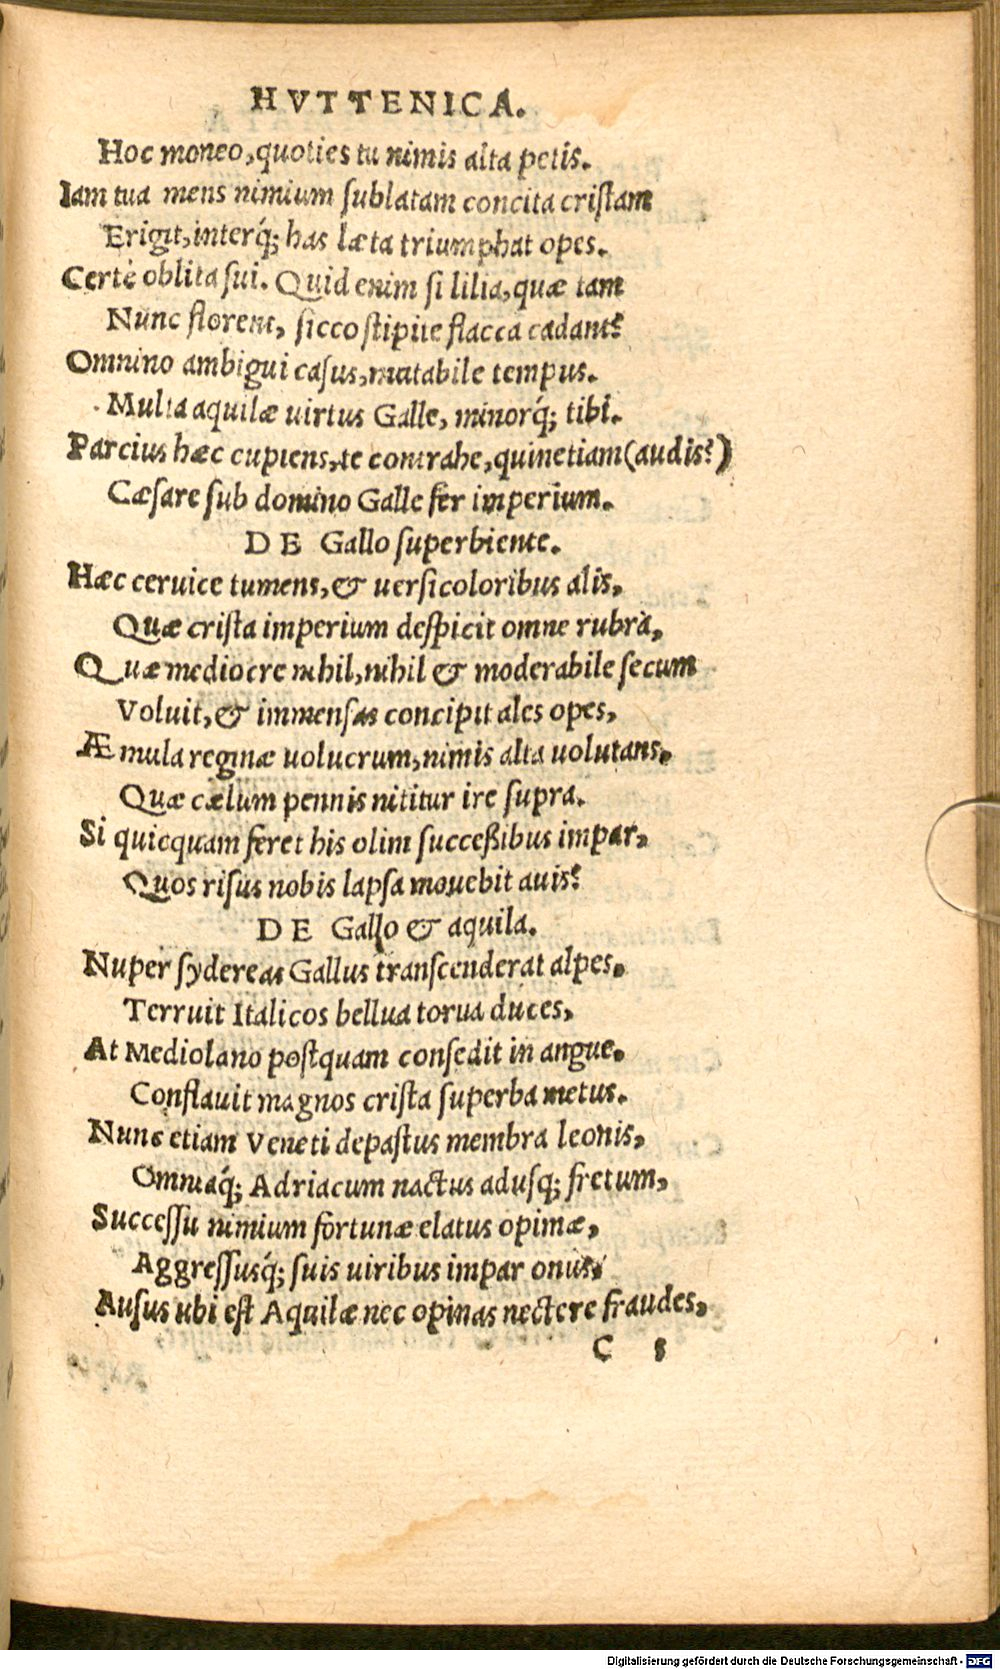 HVTTENICA.
Hoc moneo, quoties tu nimis alta petis.
Iam tua mens nimium sublatam concita cristam
Erigit, interq́; has læta triumphat opes.
Certè oblita sui. Quid enim si lilia, quæ tam
Nunc florent, sicco stipite flacca cadant?
Omnino ambigui casus, mutabile tempus.
Multa aquilæ uirtus Galle, minorq́; tibi.
Parcius hæc cupiens, te contrahe, quinetiam (audis?)
Cæsare sub domino Galle fer imperium.
DE Gallo superbiente.
Hæc ceruice tumens, & uersicoloribus alis,
Quæ crista imperium despicit omne rubrà,
Quæ mediocre nihil, nihil & moderabile secum
Voluit, & immensas concipit ales opes,
Æmula reginæ uolucrum, nimis alta uolutans,
Quæ cælum pennis nititur ire supra.
Si quicquam feret his olim succeßibus impar,
Quos risus nobis lapsa mouebit auis?
DE Gallo & aquila.
Nuper sydereas Gallus transcenderat alpes,
Terruit Italicos bellua torua duces,
At Mediolano postquam consedit in angue,
Conflauit magnos crista superba metus.
Nunc etiam Veneti depastus membra leonis,
Omniaq́; Adriacum nactus adusq; fretum,
Successu nimium fortunæ elatus opimæ,
Aggressusq́; suis uiribus impar onus,
Ausus ubi est Aquilæ nec opinas nectere fraudes,
C
Digitalisierung gefördert durch die Deutsche Forschungsgemeinschaft - DFG